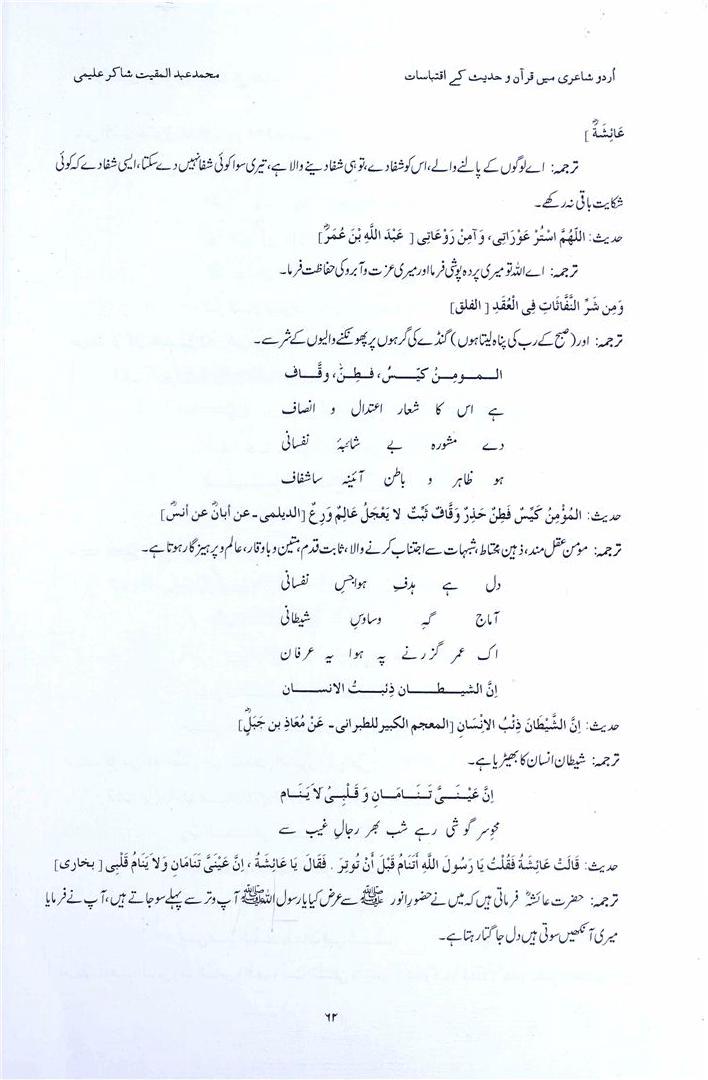 اُردو شاعری میں قرآن و حدیث کے اقتباسات
محمد عبد المقیت شاکر علیمی
عَائِشَةؓ]
ترجمہ: اے لوگوں کے پالنے والے، اس کو شفا دے، تو ہی شفا دینے والا ہے، تیری سوا کوئی شفا نہیں دے سکتا، ایسی شفا دے کہ کوئی
شکایت باقی نہ رکھے۔
حدیث: اللّٰهُمَّ اسْتُرْ عَوْرَاتِی، وَآمِنْ رَوْعَاتِی [عَبْدَ اللَّهِ بْنَ عُمَرؓ]
ترجمہ: اے اللہ تو میری پردہ پوشی فرما اور میری عزت و آبرو کی حفاظت فرما۔
وَمِن شَرِّ النَّفَّاثَاتِ فِی الْعُقَدِ [الفلق]
ترجمہ: اور (صبح کے رب کی پناہ لیتا ہوں) گنڈے کی گرہوں پر پھونکنے والیوں کے شر سے۔
الــمــومِــنُ کَـیِّــسُ، فَــطِــنْ، وقَّــاف
ہے اس کا شعار اعتدال و انصاف
دے مشورہ بے شائبۂ نفسانی
ہو ظاہر و باطن آئینہ سا شفاف
حدیث: المُؤْمِنُ كَيِّسٌ فَطِنٌ حَذِرٌ وَقَّافٌ ثَبِّتٌ لا يَعْجَلُ عَالِمٌ وَرِعٌ [الدیلمی ۔ عن أبانؓ عن أنسؓ]
ترجمہ: مومن عقل مند، ذہین، محتاط، شبہات سے اجتناب کرنے والا، ثابت قدم، متین و باوقار، عالم و پرہیزگار ہوتا ہے۔
دل ہے ہدفِ ہواجسِ نفسانی
آماج گہِ وساوسِ شیطانی
اک عمر گزرنے پہ ہوا یہ عرفان
اِنَّ الشیــطــــان ذِئــبــتُ الانـســـان
حدیث: اِنَّ الشَّيْطَانَ ذِئْبُ الإِنْسَانِ [المعجم الکبیر للطبرانی ۔ عَنْ مُعَاذِ بن جَبَلٍؓ]
ترجمہ: شیطان انسان کا بھیڑیا ہے۔
اِنَّ عَـیْـنَــیَّ تَـنَــامَــانِ وَ قَـلْـبِـیْ لاَ یَـنَــام
محوِ سرگوشی رہے شب بھر رجالِ غیب سے
حدیث: قَالَتْ عَائِشَةُ فَقُلْتُ يَا رَسُولَ اللَّهِ أَتَنَامُ قَبْلَ أَنْ تُوتِرَ . فَقَالَ يَا عَائِشَةُ ، إِنَّ عَيْنَيَّ تَنَامَانِ وَلاَ يَنَامُ قَلْبِي [بخاری]
ترجمہ: حضرت عائشہؓ فرماتی ہیں کہ میں نے حضورِ انور ﷺ سے عرض کیا یا رسول اللہ ﷺ آپ وتر سے پہلے سو جاتے ہیں، آپ نے فرمایا
میری آنکھیں سوتی ہیں دل جاگتا رہتا ہے۔
۶۲